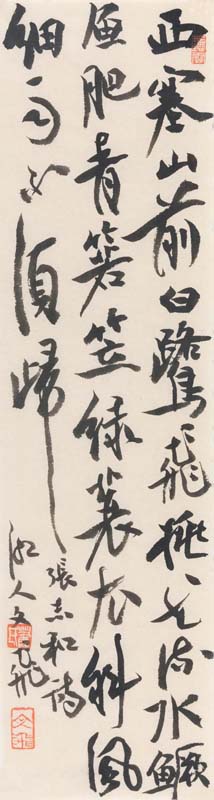 西塞山前白鷺飛桃花流水鱖
魚肥青箬笠綠蓑衣斜風
細雨不須歸
張志和詩
湘人文飛